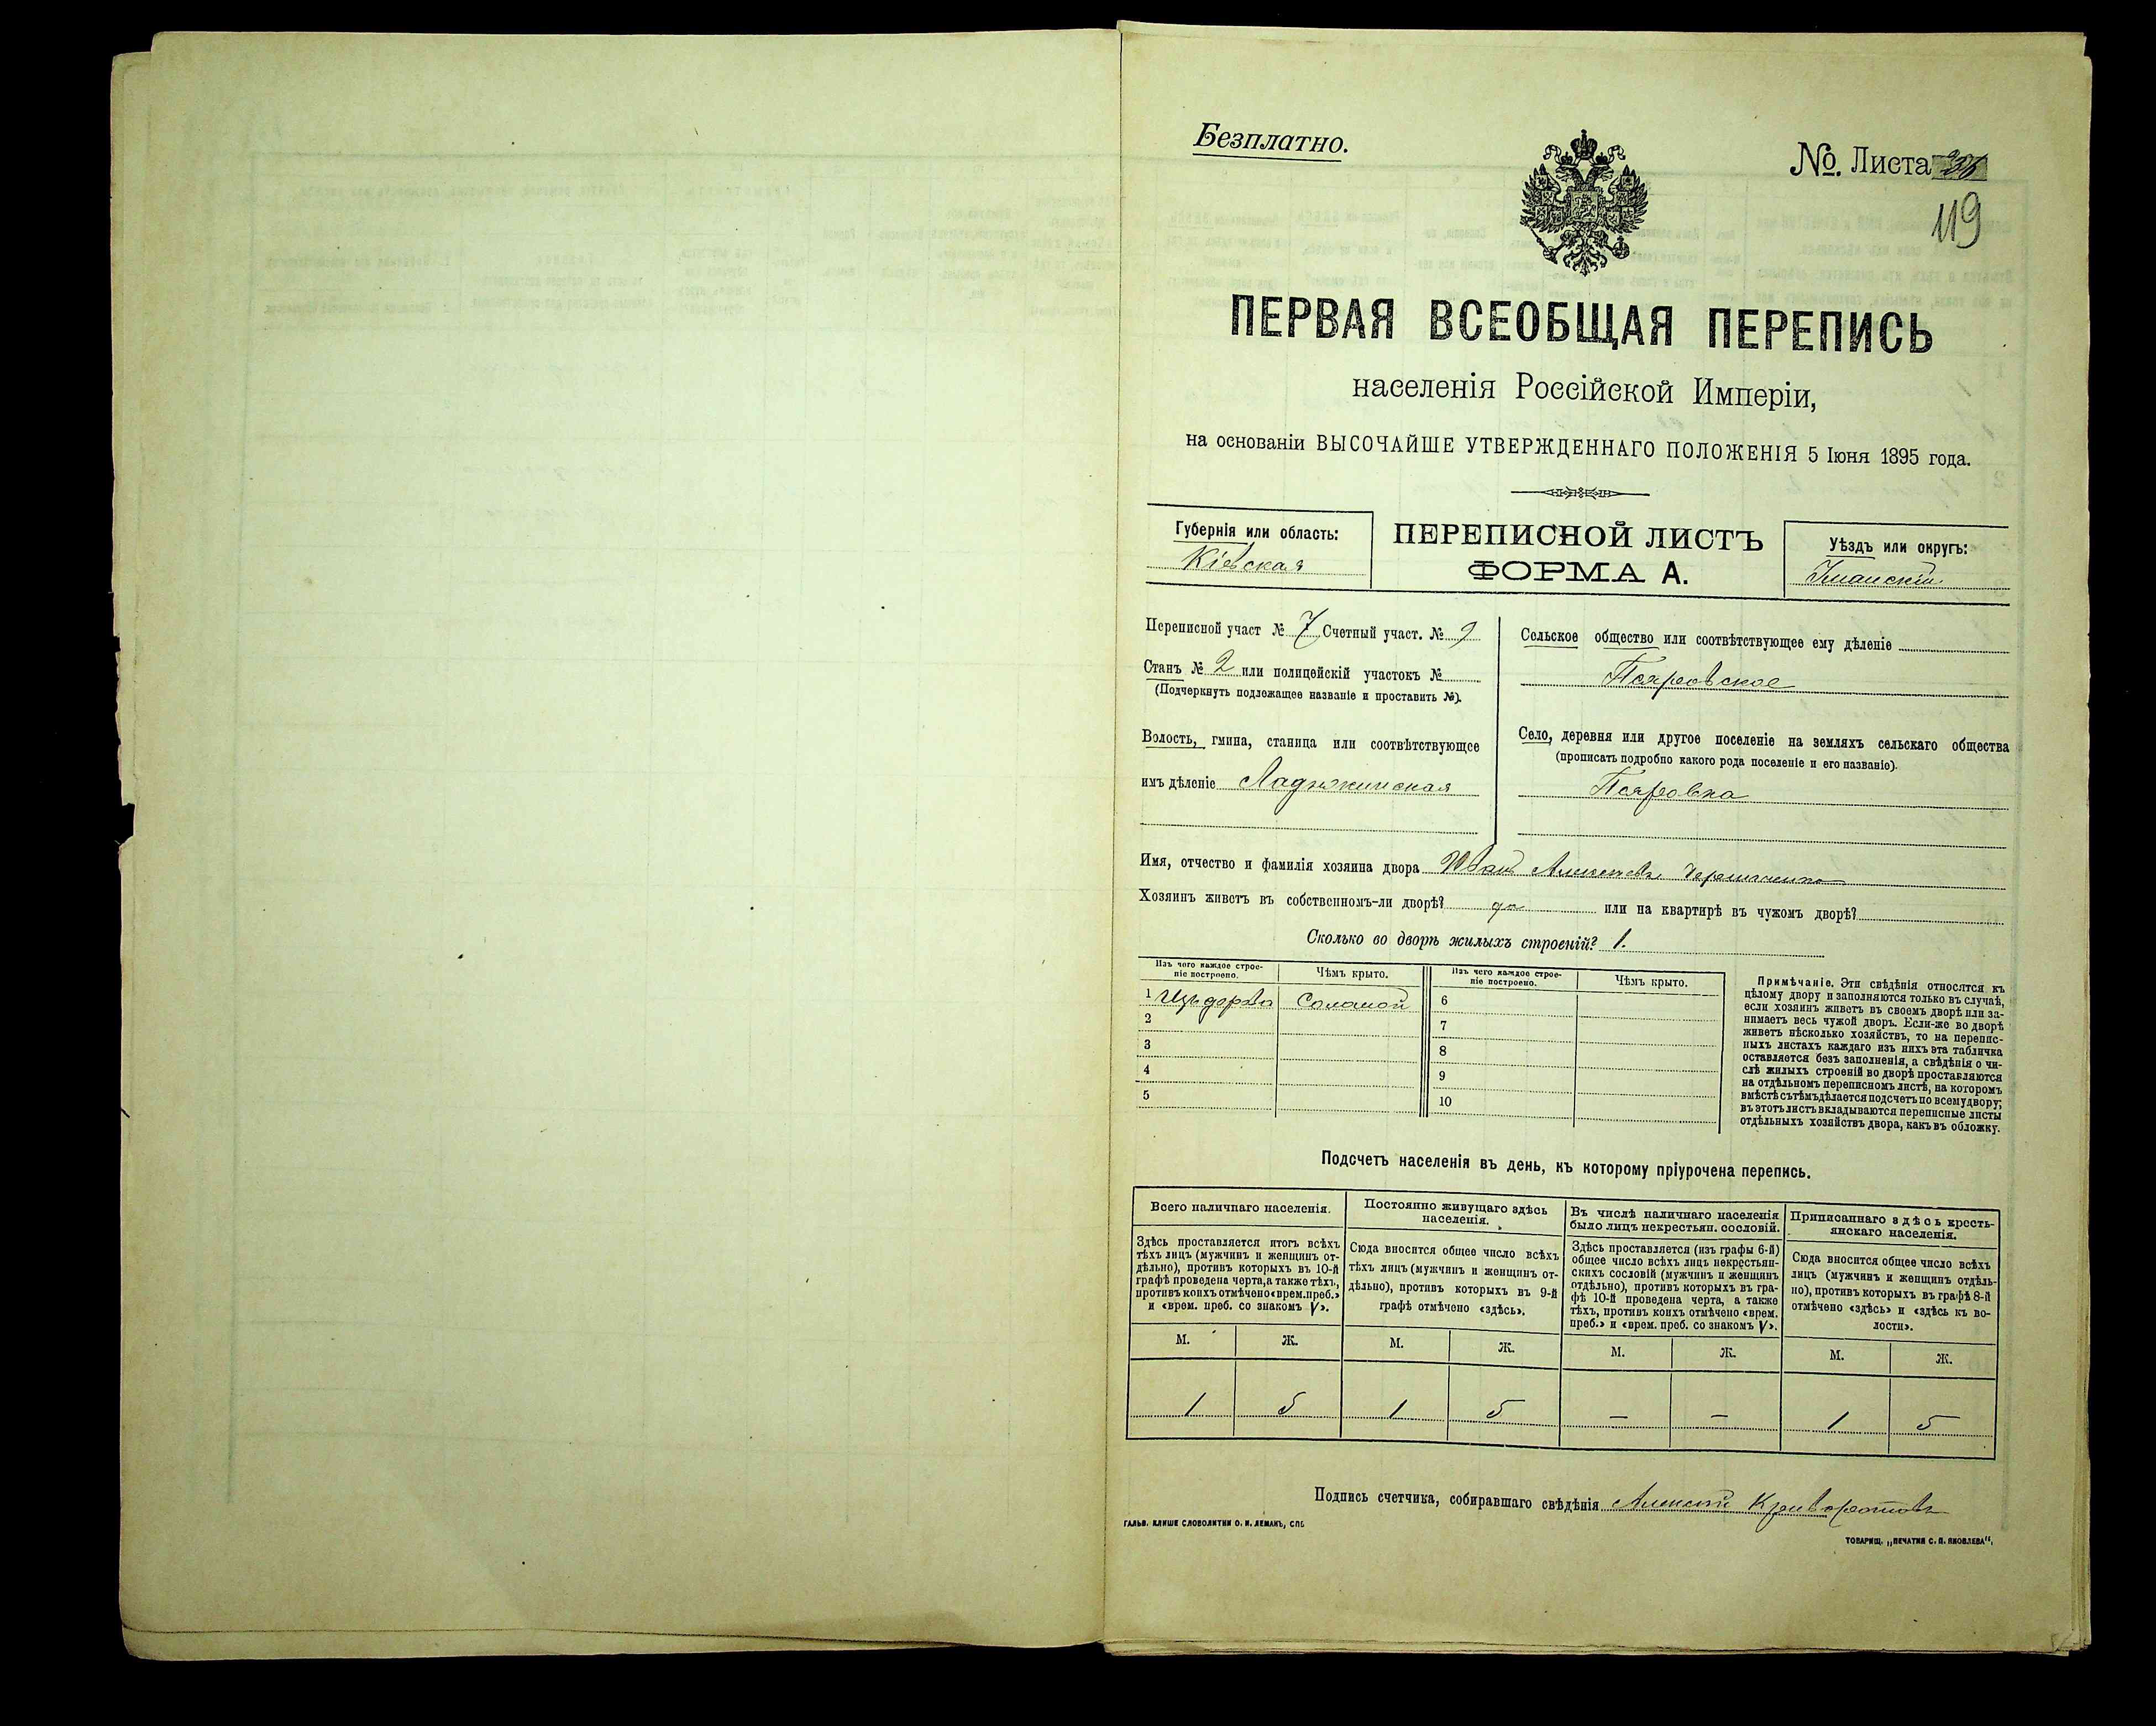 Безплатно.
№. Листа
119
ПЕРВАЯ ВСЕОБЩАЯ ПЕРЕПИСЬ
населенія Россійской Имперіи,
на основаніи ВЫСОЧАЙШЕ УТВЕРЖДЕННАГО ПОЛОЖЕНІЯ 5 Іюня 1895 года.
Губернія или область:
Кіевская
ПЕРЕПИСНОЙ ЛИСТЪ
ФОРМА А.
Уѣздъ или округъ:
Уманскій
Переписной участ № 7 Счетный участ. № 9
Станъ № 2 или полицейскій участокъ №
(Подчеркнуть подлежащее названіе и проставить №).
Волость, гмина, станица или соотвѣтствующее
имъ дѣленіе Ладыжинская
Сельское общество или соотвѣтствующее ему дѣленіе
Псяровское
Село, деревня или другое поселеніе на земляхъ сельскаго общества
(прописать подробно какого рода поселеніе и его названіе).
Псяровка
Имя, отчество и фамилія хозяина двора Иванъ Алексѣевъ
Хозяинъ живетъ въ собственномъ-ли дворѣ? да или на квартирѣ въ чужомъ дворѣ?
Сколько во дворѣ жилыхъ строеній? 1.
Изъ чего каждое строе-
ніе построено.
Чѣмъ крыто.
Изъ чего каждое строе-
ніе построено.
Чѣмъ крыто.
1 Изъ дерева Соломой
2
3
4
5
6
7
8
9
10
Примѣчаніе. Эти свѣдѣнія относятся къ
цѣлому двору и заполняются только въ случаѣ,
если хозяинъ живетъ въ своемъ дворѣ или за-
нимаетъ весь чужой дворъ. Если-же во дворѣ
живетъ нѣсколько хозяйствъ, то на перепис-
ныхъ листахъ каждаго изъ нихъ эта табличка
оставляется безъ заполненія, а свѣдѣнія о чи-
слѣ жилыхъ строеній во дворѣ проставляются
на отдѣльномъ переписномъ листѣ, на которомъ
вмѣстѣ съ тѣмъ дѣлается подсчетъ по всему двору;
въ этотъ листъ вкладываются переписные листы
отдѣльныхъ хозяйствъ двора, какъ въ обложку.
Подсчетъ населенія въ день, къ которому пріурочена перепись.
Всего наличнаго населенія.
Здѣсь проставляется итогъ всѣхъ
тѣхъ лицъ (мужчинъ и женщинъ от-
дѣльно), противъ которыхъ въ 10-й
графѣ проведена черта, а также тѣхъ,
противъ коихъ отмѣчено «врем. преб.»
и «врем. преб. со знакомъ V».
Постоянно живущаго здѣсь
населенія.
Сюда вносится общее число всѣхъ
тѣхъ лицъ (мужчинъ и женщинъ от-
дѣльно), противъ которыхъ въ 9-й
графѣ отмѣчено «здѣсь».
Въ числѣ наличнаго населенія
было лицъ некрестьян. сословій.
Здѣсь проставляется (изъ графы 6-й)
общее число всѣхъ лицъ некрестьян-
скихъ сословій (мужчинъ и женщинъ
отдѣльно), противъ которыхъ въ гра-
фѣ 10-й проведена черта, а также
тѣхъ, противъ коихъ отмѣчено «врем.
преб.» и «врем. преб. со знакомъ V».
Приписаннаго здѣсь кресть-
янскаго населенія.
Сюда вносится общее число всѣхъ
лицъ (мужчинъ и женщинъ отдѣль-
но), противъ которыхъ въ графѣ 8-й
отмѣчено «здѣсь» и «здѣсь къ во-
лости».
М. Ж. М. Ж. М. Ж. М. Ж.
1 5 1 5 — — 1 5
Подпись счетчика, собиравшаго свѣдѣнія Алексѣй Криворотовъ
ГАЛЬВ. КЛИШЕ СЛОВОЛИТНИ О. И. ЛЕМАНЪ, СПБ.
ТОВАРИЩ. „ПЕЧАТНЯ С. П. ЯКОВЛЕВА“.